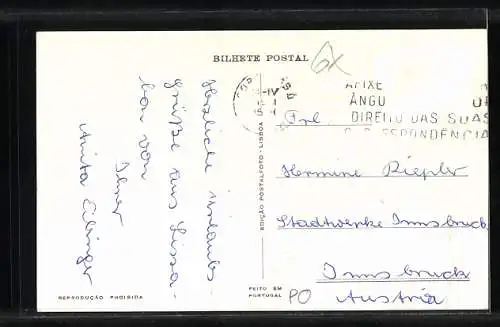 BILHETE POSTAL
6x
Herzliche Urlaubs-
Grüße aus Lissa-
bon von
Ihrer
Anita Eibinger
AFIXE
ÂNGU
DIREITO DAS SUAS
ESPONDÊNCIA
Frl
Hermine Riepler
Stadtwerke Innsbruck
Innsbruck
Austria
PO
EDIÇÃO POSTALFOTO · LISBOA
FEITO EM
PORTUGAL
REPRODUÇÃO PROIBIDA